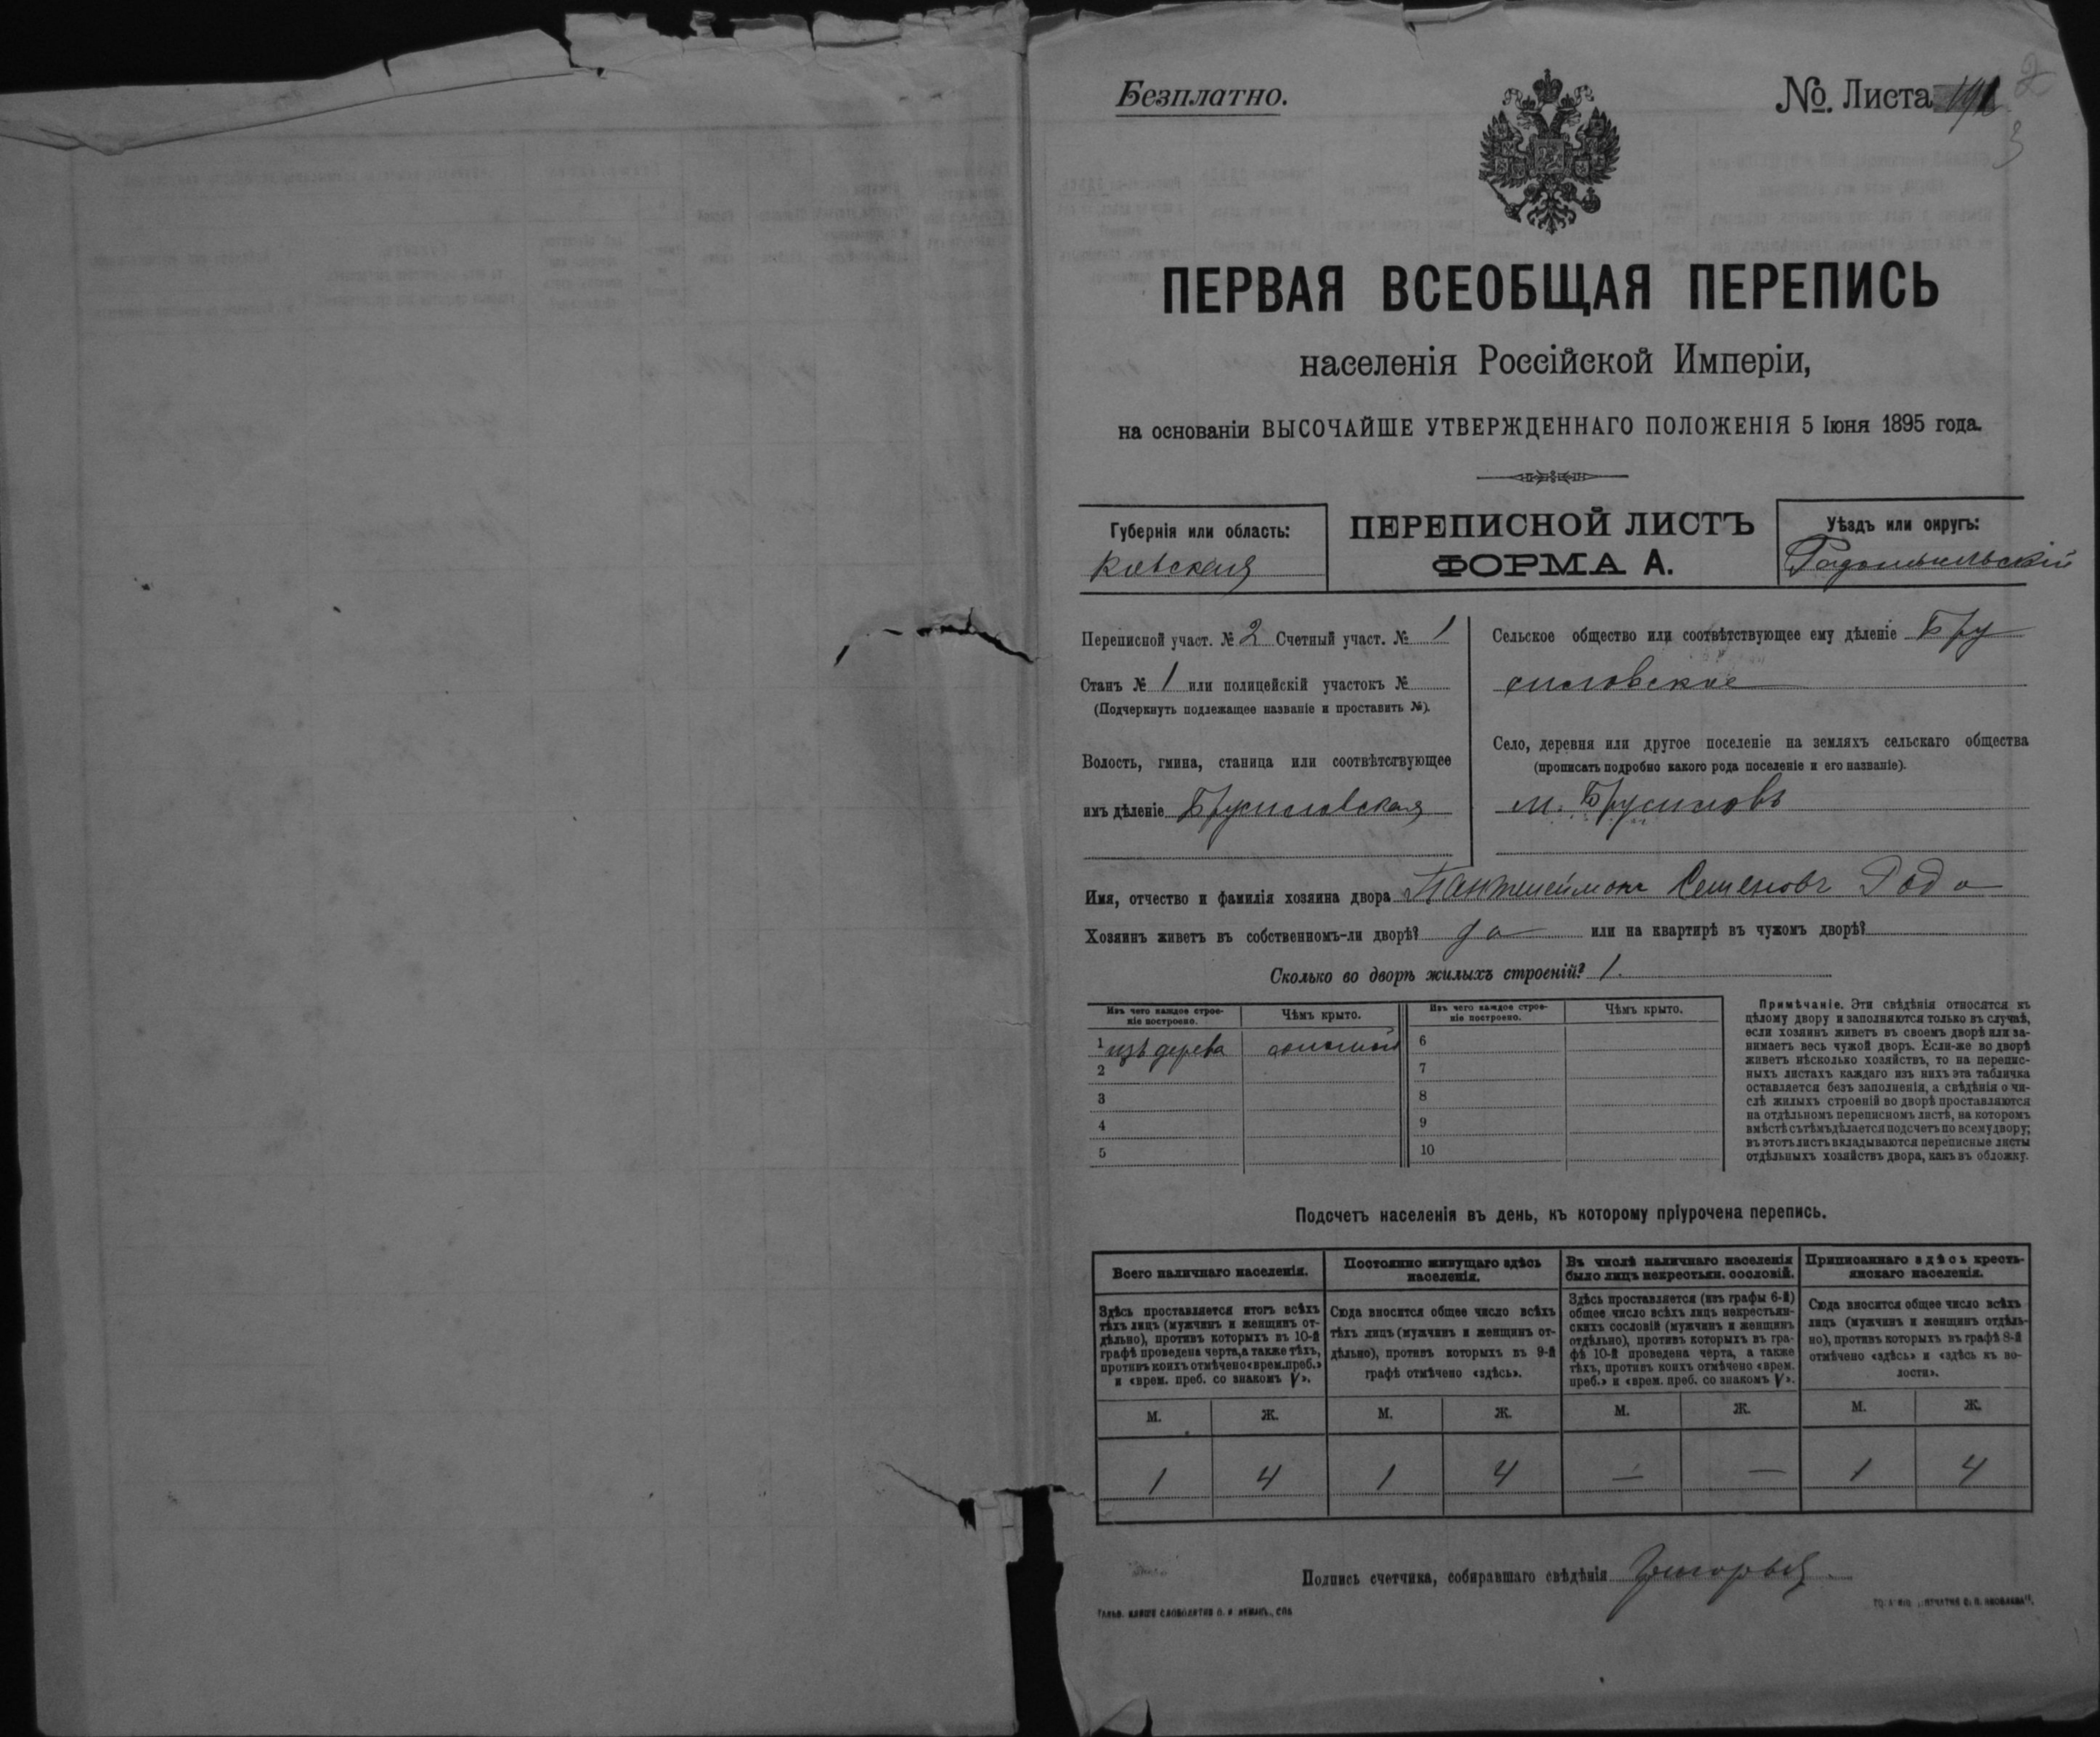 Безплатно.
№. Листа
2
3
ПЕРВАЯ ВСЕОБЩАЯ ПЕРЕПИСЬ
населенія Россійской Имперіи,
на основаніи ВЫСОЧАЙШЕ УТВЕРЖДЕННАГО ПОЛОЖЕНІЯ 5 Іюня 1895 года.
Губернія или область:
Кіевская
ПЕРЕПИСНОЙ ЛИСТЪ
ФОРМА А.
Уѣздъ или округъ:
Радомысльскій
Переписной участ. № 2 Счетный участ. № 1
Станъ № 1 или полицейскій участокъ №
(Подчеркнуть подлежащее названіе и проставить №).
Волость, гмина, станица или соотвѣтствующее
имъ дѣленіе Брусиловская
Сельское общество или соотвѣтствующее ему дѣленіе Бру
силовское
Село, деревня или другое поселеніе на земляхъ сельскаго общества
(прописать подробно какого рода поселеніе и его названіе).
м. Брусиловъ
Имя, отчество и фамилія хозяина двора Пантелеймонъ Семеновъ
Хозяинъ живетъ въ собственномъ-ли дворѣ? да или на квартирѣ въ чужомъ дворѣ?
Сколько во дворѣ жилыхъ строеній? 1.
Изъ чего каждое строе-
ніе построено.
Чѣмъ крыто.
Изъ чего каждое строе-
ніе построено.
Чѣмъ крыто.
1 изъ дерева соломой 6
2 7
3 8
4 9
5 10
Примѣчаніе. Эти свѣдѣнія относятся къ
цѣлому двору и заполняются только въ случаѣ,
если хозяинъ живетъ въ своемъ дворѣ или за-
нимаетъ весь чужой дворъ. Если-же во дворѣ
живетъ нѣсколько хозяйствъ, то на перепис-
ныхъ листахъ каждаго изъ нихъ эта табличка
оставляется безъ заполненія, а свѣдѣнія о чи-
слѣ жилыхъ строеній во дворѣ проставляются
на отдѣльномъ переписномъ листѣ, на которомъ
вмѣстѣ съ тѣмъ дѣлается подсчетъ по всему двору;
въ этотъ листъ вкладываются переписные листы
отдѣльныхъ хозяйствъ двора, какъ въ обложку.
Подсчетъ населенія въ день, къ которому пріурочена перепись.
Всего наличнаго населенія.
Постоянно живущаго здѣсь
населенія.
Въ числѣ наличнаго населенія
было лицъ некрестьян. сословій.
Приписаннаго здѣсь кресть-
янскаго населенія.
Здѣсь проставляется итогъ всѣхъ
тѣхъ лицъ (мужчинъ и женщинъ от-
дѣльно), противъ которыхъ въ 10-й
графѣ проведена черта, а также тѣхъ,
противъ коихъ отмѣчено «врем. преб.»
и «врем. преб. со знакомъ V».
Сюда вносится общее число всѣхъ
тѣхъ лицъ (мужчинъ и женщинъ от-
дѣльно), противъ которыхъ въ 9-й
графѣ отмѣчено «здѣсь».
Здѣсь проставляется (изъ графы 6-й)
общее число всѣхъ лицъ некрестьян-
скихъ сословій (мужчинъ и женщинъ
отдѣльно), противъ которыхъ въ гра-
фѣ 10-й проведена черта, а также
тѣхъ, противъ коихъ отмѣчено «врем.
преб.» и «врем. преб. со знакомъ V».
Сюда вносится общее число всѣхъ
лицъ (мужчинъ и женщинъ отдѣль-
но), противъ которыхъ въ графѣ 8-й
отмѣчено «здѣсь» и «здѣсь къ во-
лости».
М. Ж. М. Ж. М. Ж. М. Ж.
1 4 1 4 — — 1 4
Подпись счетчика, собиравшаго свѣдѣнія